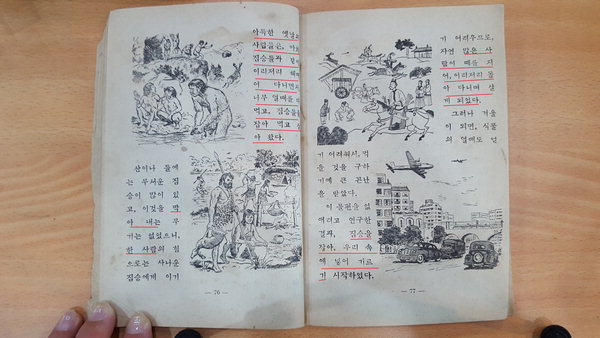 아득한 옛날의
사람들은,
짐승들과
이리저리
어 다니면서
나무 열매를
먹고, 짐승들을
잡아 먹고 살
아 왔다.
산이나 들에
는 무서운 짐
승이 많이 있
고, 이것을 막
아 내는 무
기는 없었으니,
한 사람의 힘
으로는 사나운
짐승에게 이기
— 76 —
기 어려우므로,
자연 많은 사
람이 떼를 지
어, 이리저리 돌
아 다니며 살
게 되었다.
그러나 겨울
이 되면, 식물
의 열매도 얻
기 어려워서, 먹
을 것을 구하
기에 큰 곤난
을 받았다.
이 불편을 없
애려고 연구한
결과, 짐승을
잡아, 우리 속
에 넣어 기르
기 시작하였다.
— 77 —